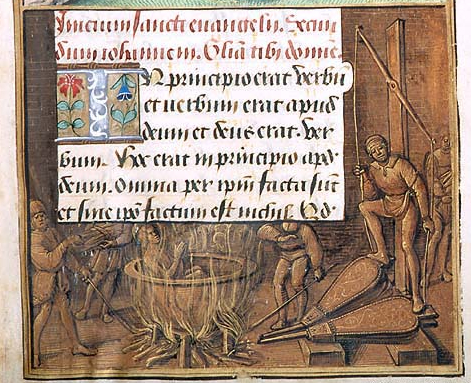 Inicium sancti euangelii. Secun
dum iohannem. Gl̃ia tibi domine.
IN principio erat verbũ
et uerbum erat apud
deum et deus erat ver
bum. Hoc erat in principio apd̾
deum. Omnia per ip̃m facta sũt
et sine ip̃o factum est nichil. Qd̾